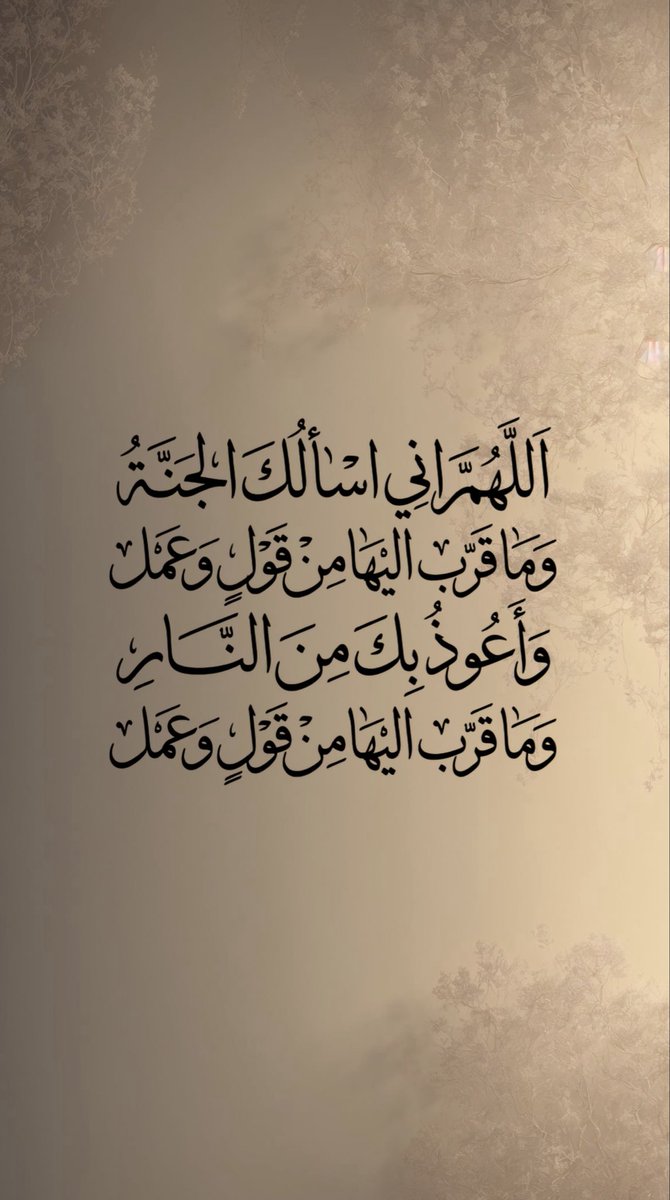 اَللَّهُمَّ اِنِي اسْأَلُكَ الجَنَّةُ
وَمَا قَرَّب اليْهَا مِنْ قَوْلٍ وَعَمَل
وَأَعُوذُ بِكَ مِنَ النَّارِ
وَمَا قَرَّب اليْهَا مِنْ قَوْلٍ وَعَمَل